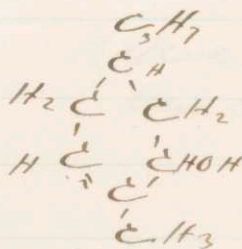 C₃H₇
C H
H₂ C CH₂
H C CHOH
C
CH₃